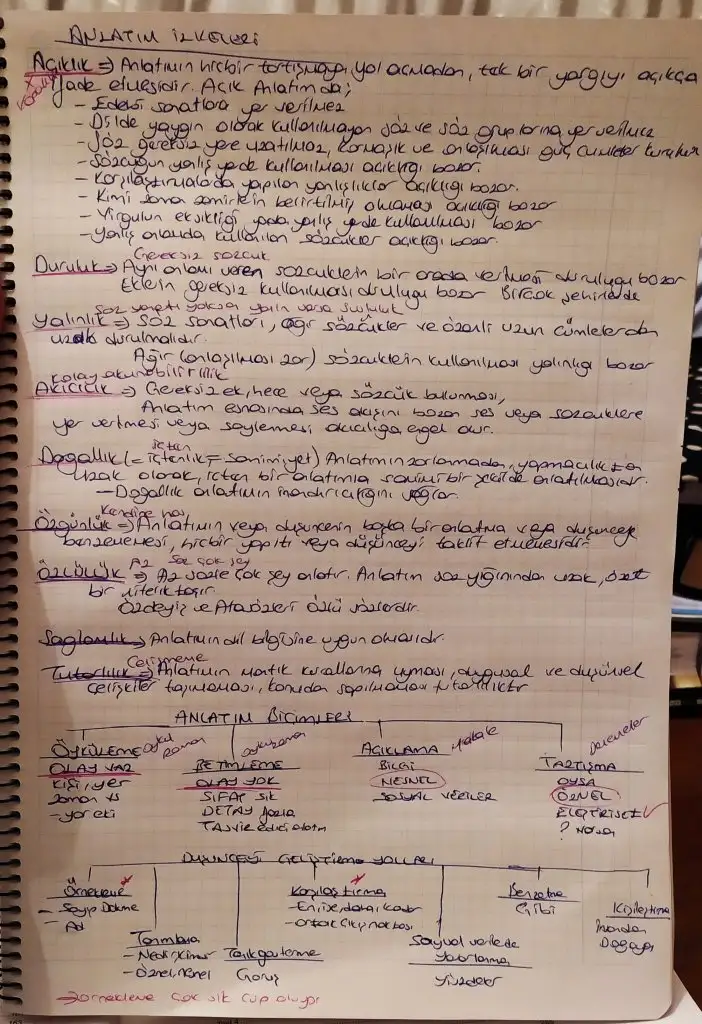 ANLATIM İLKELERİ
Açıklık => Anlatımın hiçbir tartışmaya yol açmadan, tek bir yargıyı açıkça
ifade etmesidir. Açık Anlatımda;
- Edebi sanatlara yer verilmez
- Dilde yaygın olarak kullanılmayan söz ve söz gruplarına yer verilmez
- Söz gereksiz yere uzatılmaz, karmaşık ve anlaşılması güç cümleler kurulmaz
- Sözcüğün yanlış yerde kullanılması açıklığı bozar.
- Karşılaştırmalarda yapılan yanlışlıklar açıklığı bozar.
- Kimi zaman zamirlerin belirtilmiş olmaması açıklığı bozar
- Virgülün eksikliği yada yanlış yerde kullanılması bozar
- Yanlış anlamda kullanılan sözcükler açıklığı bozar.
Gereksiz sözcük
Duruluk => Aynı anlamı veren sözcüklerin bir arada verilmesi duruluğu bozar
Eklerin gereksiz kullanılması duruluğu bozar Birçok şehirlerde
Söz sanatı yoksa yalın varsa
Yalınlık => Söz sanatları, ağır sözcükler ve özenli uzun cümlelerden
uzak durulmalıdır.
Ağır (anlaşılması zor) sözcüklerin kullanılması yalınlığı bozar
Kolay okunabilirlilik
Akıcılık => Gereksiz ek, hece veya sözcük bulunması,
Anlatım esnasında ses akışını bozan ses veya sözcüklere
yer verilmesi veya söylenmesi akıcılığa engel olur.
içten
Doğallık (= içtenlik = samimiyet) Anlatımın zorlanmadan, yapmacılıktan
uzak olarak, içten bir anlatımla samimi bir şekilde anlatılmasıdır.
- Doğallık anlatımın inandırıcılığını sağlar.
Kendine has
Özgünlük => Anlatımın veya düşüncenin başka bir anlatıma veya düşünceye
benzememesi, hiçbir yapıtı veya düşünceyi taklit etmemesidir
Az söz çok şey
ÖZLÜLÜK => Az sözle çok şey anlatır. Anlatım söz yığınından uzak, özet
bir nitelik taşır.
Özdeyiş ve Atasözleri özlü sözlerdir.
Sağlamlık => Anlatımın dil bilgisine uygun olmasıdır.
Çelişmeme
Tutarlılık => Anlatımın mantık kurallarına uyması, duygusal ve düşünsel
çelişkiler taşımaması, konudan sapılmaması tutarlılıktır
ANLATIM BİÇİMLERİ
ÖYKÜLEME öykü roman
OLAY VAR
Kişi, yer
zaman
BETİMLEME öykü roman
OLAY YOK
SIFAT sık
DETAY fazla
Tasvir edici anlatım
AÇIKLAMA Makale
BİLGİ
NESNEL
SOSYAL VERİLER
TARTIŞMA Denemeler
OYSA
ÖZNEL
ELEŞTİRİSEL
DÜŞÜNCEYİ GELİŞTİRME YOLLARI
Örnekleme
- Sayıp Dökme
- Ad
Tanımlama
- Nedir, kimdir
- Öznel, Nesnel
Tanık gösterme
Görüş
Karşılaştırma
- En, ise, daha, kadar
- Ortak çıkış noktası
Sayısal verilerden
Yararlanma
Yüzdeler
Benzetme
Gibi
Kişileştirme
İnsandan
Doğaya
→ Örnekleme çok sık